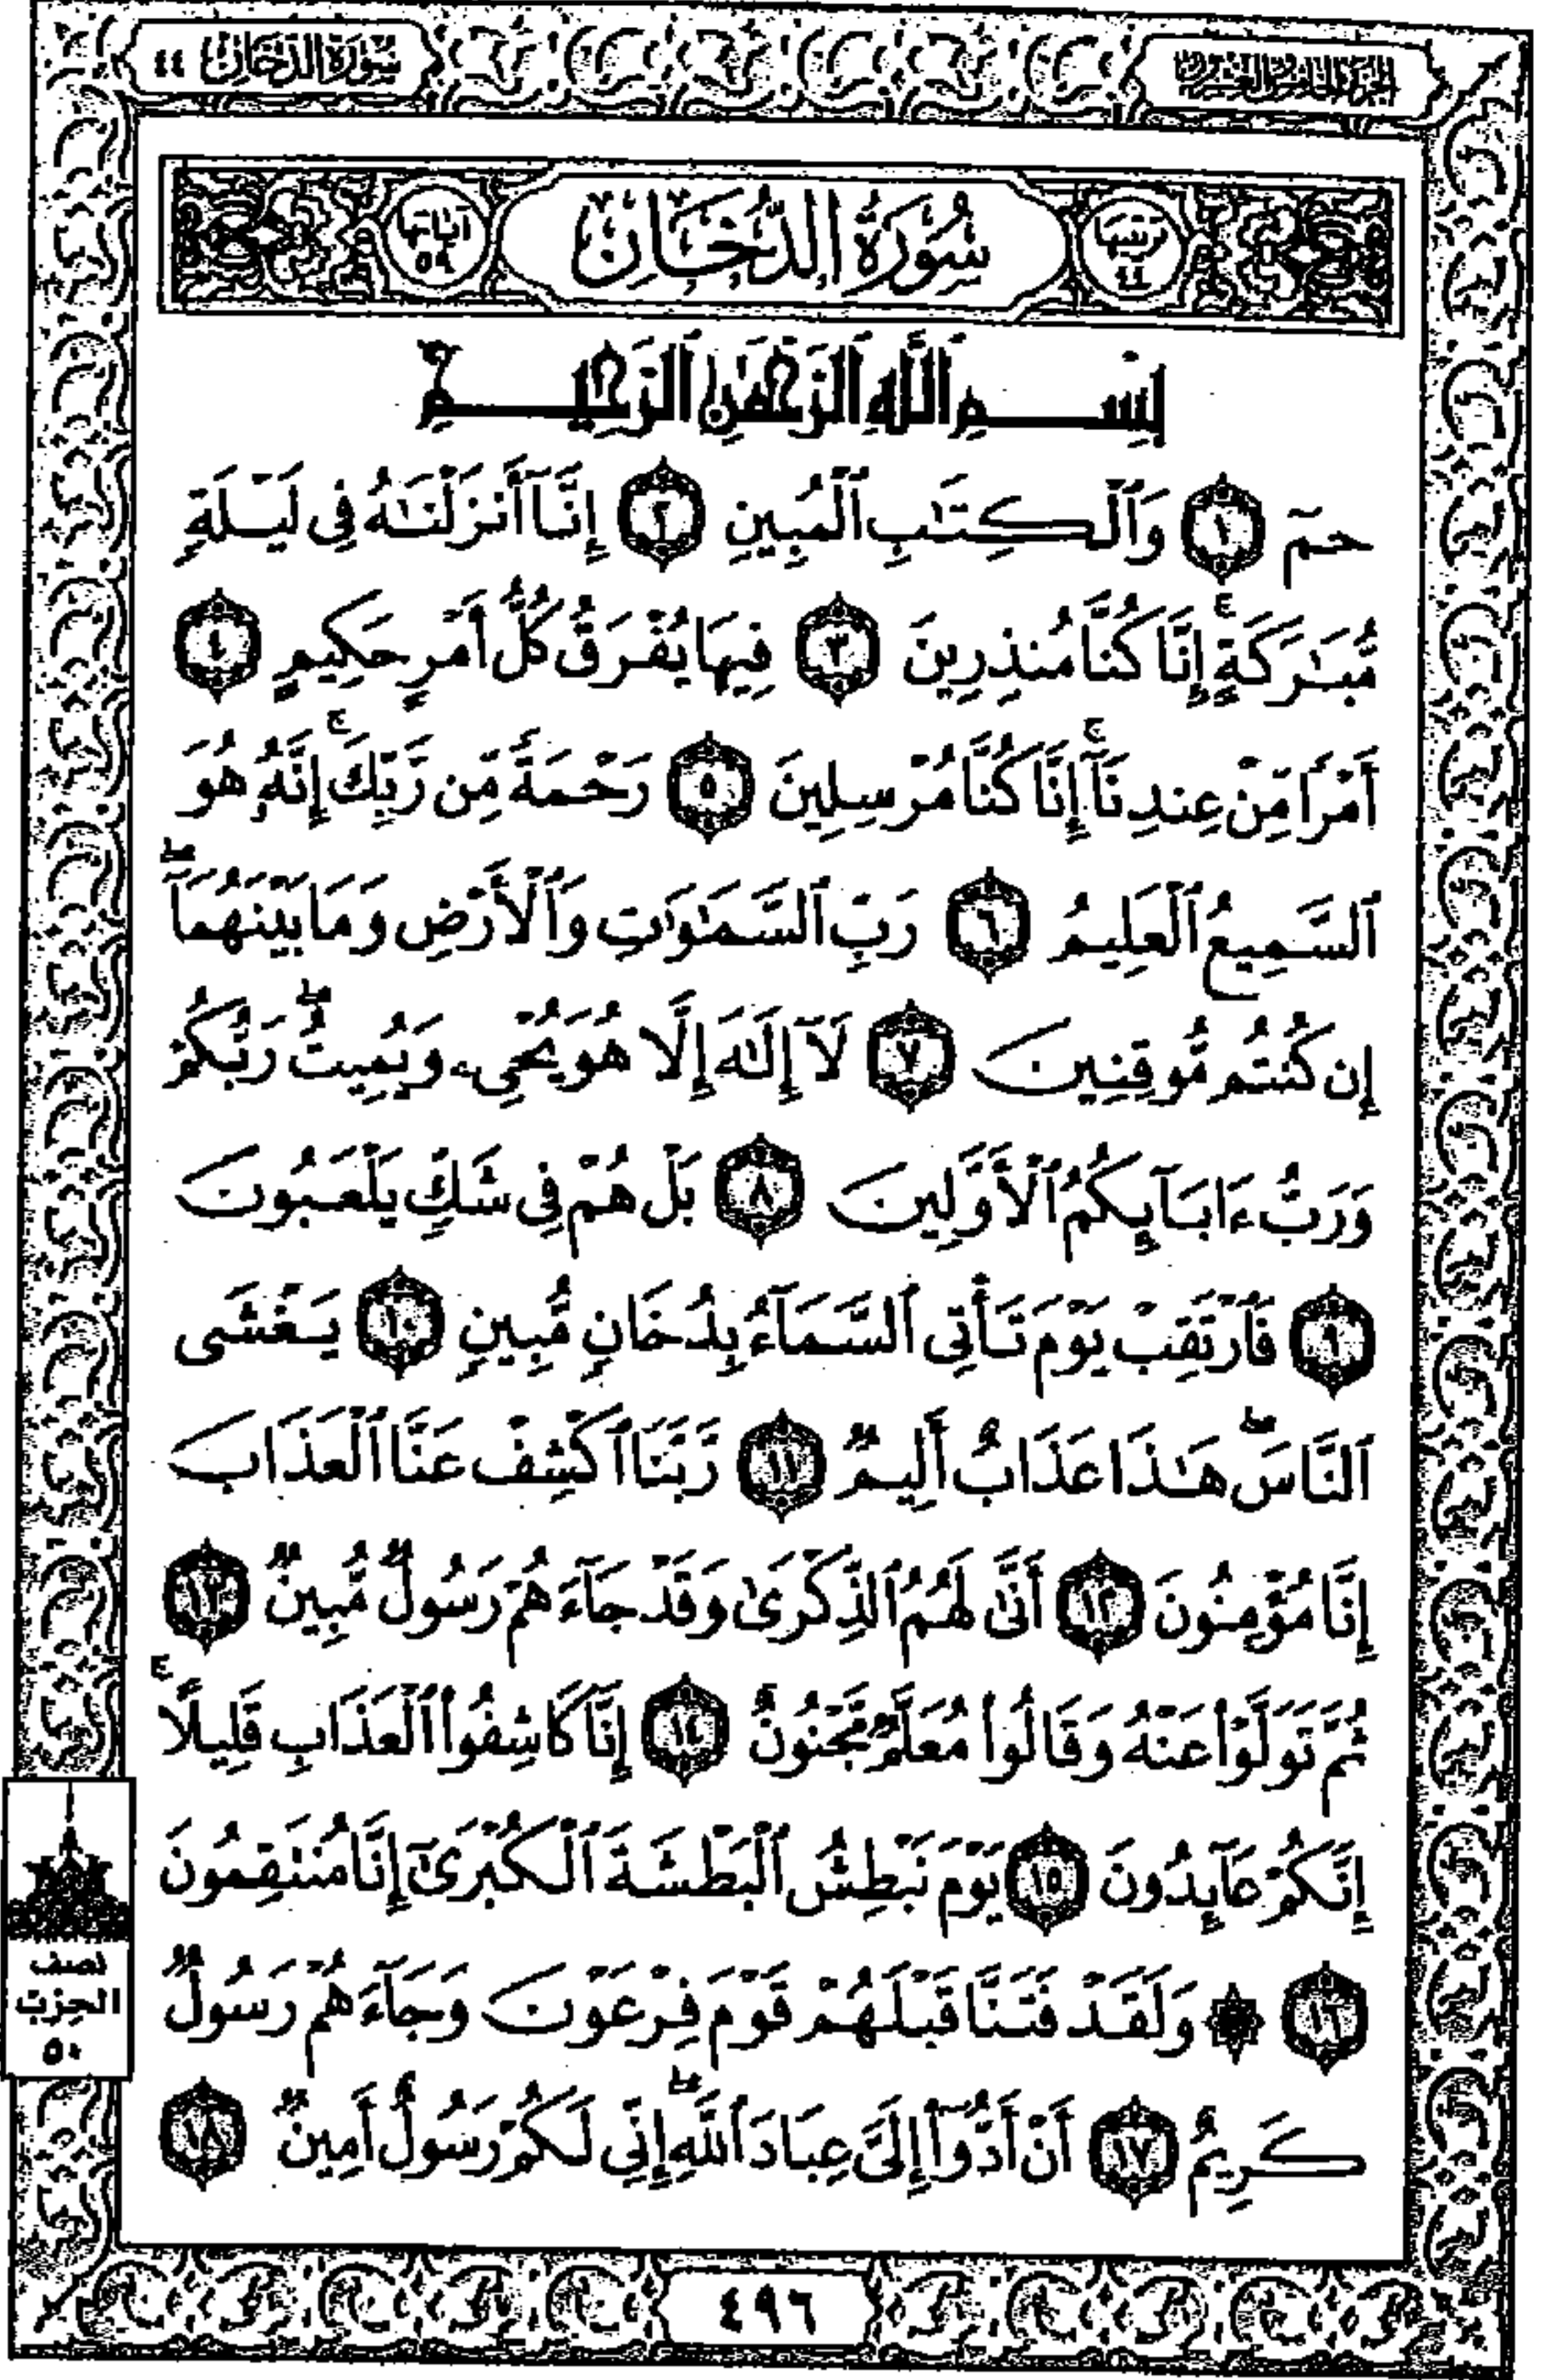 الجزء الخامس والعشرون
سُورَةُ الدُّخَانِ ٤٤
ترتيبها ٤٤
سُورَةُ الدُّخَانِ
آياتها ٥٩
بِسْمِ ٱللَّهِ ٱلرَّحْمَٰنِ ٱلرَّحِيمِ
حمٓ ١ وَٱلْكِتَٰبِ ٱلْمُبِينِ ٢ إِنَّآ أَنزَلْنَٰهُ فِى لَيْلَةٍ
مُّبَٰرَكَةٍ ۚ إِنَّا كُنَّا مُنذِرِينَ ٣ فِيهَا يُفْرَقُ كُلُّ أَمْرٍ حَكِيمٍ ٤
أَمْرًا مِّنْ عِندِنَآ ۚ إِنَّا كُنَّا مُرْسِلِينَ ٥ رَحْمَةً مِّن رَّبِّكَ ۚ إِنَّهُۥ هُوَ
ٱلسَّمِيعُ ٱلْعَلِيمُ ٦ رَبِّ ٱلسَّمَٰوَٰتِ وَٱلْأَرْضِ وَمَا بَيْنَهُمَآ ۖ
إِن كُنتُم مُّوقِنِينَ ٧ لَآ إِلَٰهَ إِلَّا هُوَ يُحْىِۦ وَيُمِيتُ ۖ رَبُّكُمْ
وَرَبُّ ءَابَآئِكُمُ ٱلْأَوَّلِينَ ٨ بَلْ هُمْ فِى شَكٍّ يَلْعَبُونَ
٩ فَٱرْتَقِبْ يَوْمَ تَأْتِى ٱلسَّمَآءُ بِدُخَانٍ مُّبِينٍ ١٠ يَغْشَى
ٱلنَّاسَ ۖ هَٰذَا عَذَابٌ أَلِيمٌ ١١ رَّبَّنَا ٱكْشِفْ عَنَّا ٱلْعَذَابَ
إِنَّا مُؤْمِنُونَ ١٢ أَنَّىٰ لَهُمُ ٱلذِّكْرَىٰ وَقَدْ جَآءَهُمْ رَسُولٌ مُّبِينٌ ١٣
ثُمَّ تَوَلَّوْا۟ عَنْهُ وَقَالُوا۟ مُعَلَّمٌ مَّجْنُونٌ ١٤ إِنَّا كَاشِفُوا۟ ٱلْعَذَابِ قَلِيلًا ۚ
إِنَّكُمْ عَآئِدُونَ ١٥ يَوْمَ نَبْطِشُ ٱلْبَطْشَةَ ٱلْكُبْرَىٰٓ إِنَّا مُنتَقِمُونَ
١٦ ۞ وَلَقَدْ فَتَنَّا قَبْلَهُمْ قَوْمَ فِرْعَوْنَ وَجَآءَهُمْ رَسُولٌ
كَرِيمٌ ١٧ أَنْ أَدُّوٓا۟ إِلَىَّ عِبَادَ ٱللَّهِ ۖ إِنِّى لَكُمْ رَسُولٌ أَمِينٌ ١٨
نصف
الحزب
٥٠
٤٩٦